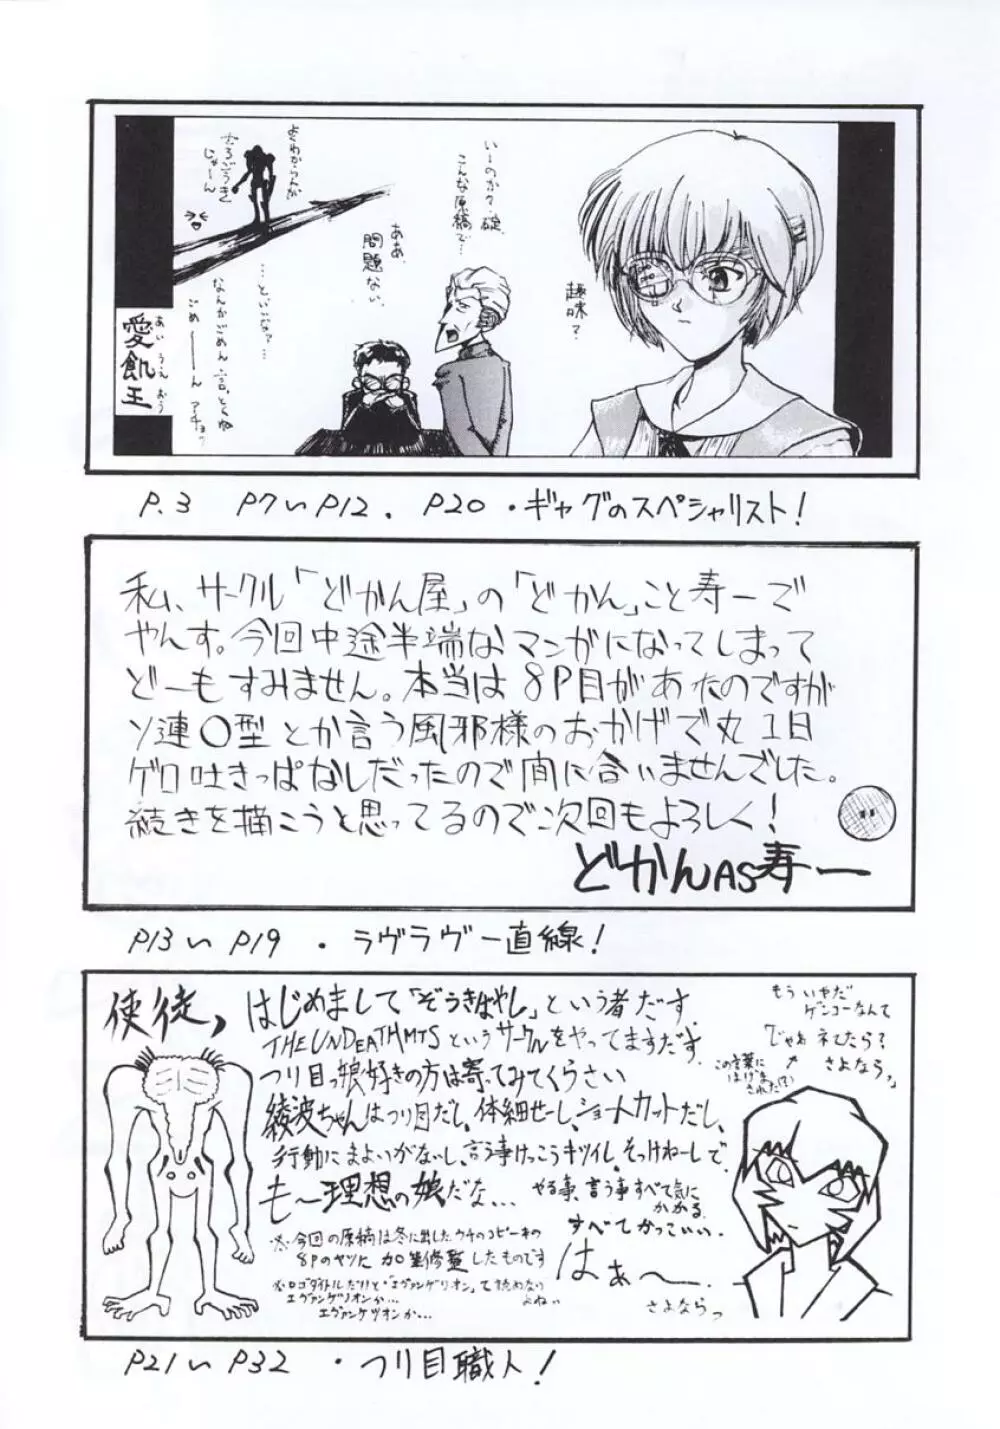 いーのか?碇
こんな原稿で…
ああ、
問題ない。
趣味?
よくわからんが
しょごうきじゃーん
…といいなァ…
なんかごめん、言っとくね
ごめーーん
愛飢王
あいうえおう
P.3 P7〜P12. P20・ギャグのスペシャリスト!
私、サークル「どかん屋」の「どかん」こと寿一で
やんす。今回中途半端なマンガになってしまって
どーもすみません。本当は8P目があったのですが
ソ連〇型とか言う風邪様のおかげで丸1日
ゲロ吐きっぱなしだったので間に合いませんでした。
続きを描こうと思ってるので次回もよろしく!
どかんAS寿一
P13〜P19・ラヴラヴ一直線!
使徒,
はじめまして「ぞうきばやし」という者だす
THE UNDEATHMTSというサークルをやってますだす。
つり目っ娘好きの方は寄ってみてくうさい
綾波ちゃんはつり目だし、体細せーし、ショートカットだし、
行動にまよいがないし、言う事けっこうキツイし、そっけねーしで
も〜理想の娘だな… やる事、言う事すべて気にかかる。
すべてかっこいい。
はぁ〜
※今回の原稿は冬に出したウチのコピー本の
8Pのヤツに加筆修整したものです
※ロゴタイトルだけど"エヴァンゲリオン"て読めないよねぃ
エヴァンゲノオンか…
エヴァンケツオンか…
もういやだ
ゲンコーなんて
じゃあネてたら?
さよならっ
この言葉に
はげまされた(?)
さよならっ
P21〜P32・つり目職人!